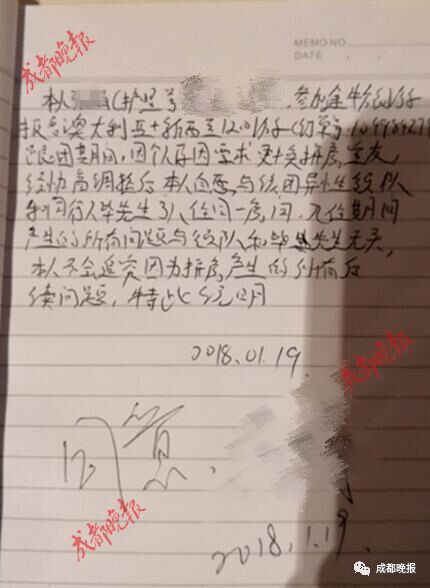 MEMO NO.
DATE
成都晚报
本人张 (护照号 参加途牛 
报名澳大利亚+新西兰12日游 (订单号:
跟团期间,因个人原因要求更换拼房室友,
经协商调整后本人自愿与该团异性领队
和同行人毕先生3人住同一房间,入住期间
产生的所有问题与领队和毕先生无关,
本人不会追究因为拼房产生的所有后
续问题,特此说明
2018.01.19.
成都晚报
同意.
成都晚报
2018.1.19.
成都晚报